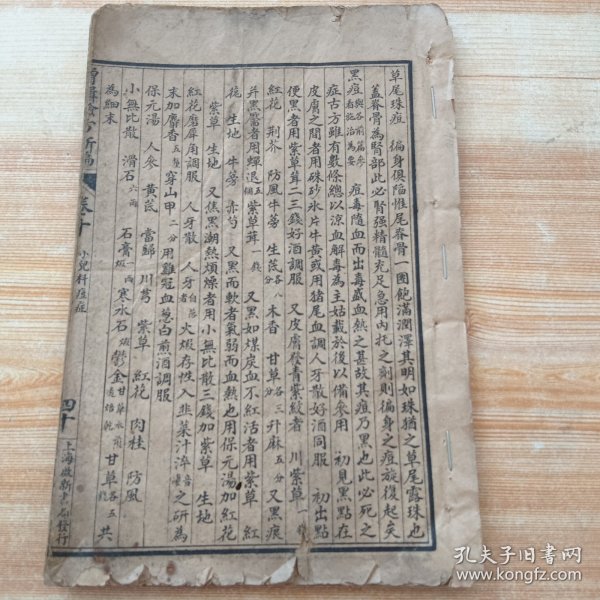 草尾珠痘　徧身俱陷惟尾脊骨一團飽滿潤澤其明如珠猶之草尾露珠也
蓋脊骨為腎部此必腎强精髓充足急用內托之剂則徧身之痘旋復起矣
黑痘與各前篇參看施治為要　痘毒隨血而出毒盛血熱之甚故其痘乃黑也此必死之
症古方雖有數條總以涼血解毒為主姑載於後以備參用　初見黑點在
皮膚之間者用硃砂氷片牛黄或用猪尾血調人牙散好酒同服　初出點
便黑者用紫草茸二三錢好酒調服　又皮膚發青紫紋者　川紫草一錢
紅花　荆芥　防風牛蒡　生芪各八分　木香　甘草各三分　升麻五分　又黑痕
并黑靨者用蟬退五個　紫草茸一錢　又黑如煤炭血不紅活者用紫草　紅
花　生地　牛蒡　赤芍　又黑而軟者氣弱而血熱也用保元湯加紅花
紫草　生地　又焦黑潮熱煩燥者用小無比散三錢加紫草　生地
紅花磨犀角調服　人牙散　人牙自落者　火煅存性入韭菜汁淬　之研為
末加麝香五厘　穿山甲二分　用雞冠血葱白煎酒調服
保元湯　人參　黄芪　當歸　川芎　紫草　紅花　肉桂　防風
小無比散　滑石六兩　石膏　寒水石　鬱金　甘草各五錢　共
為細末
驗方新編　卷十　小兒科痘症　四十　上海啟新書局發行
孔夫子旧书网
www.kongfz.com